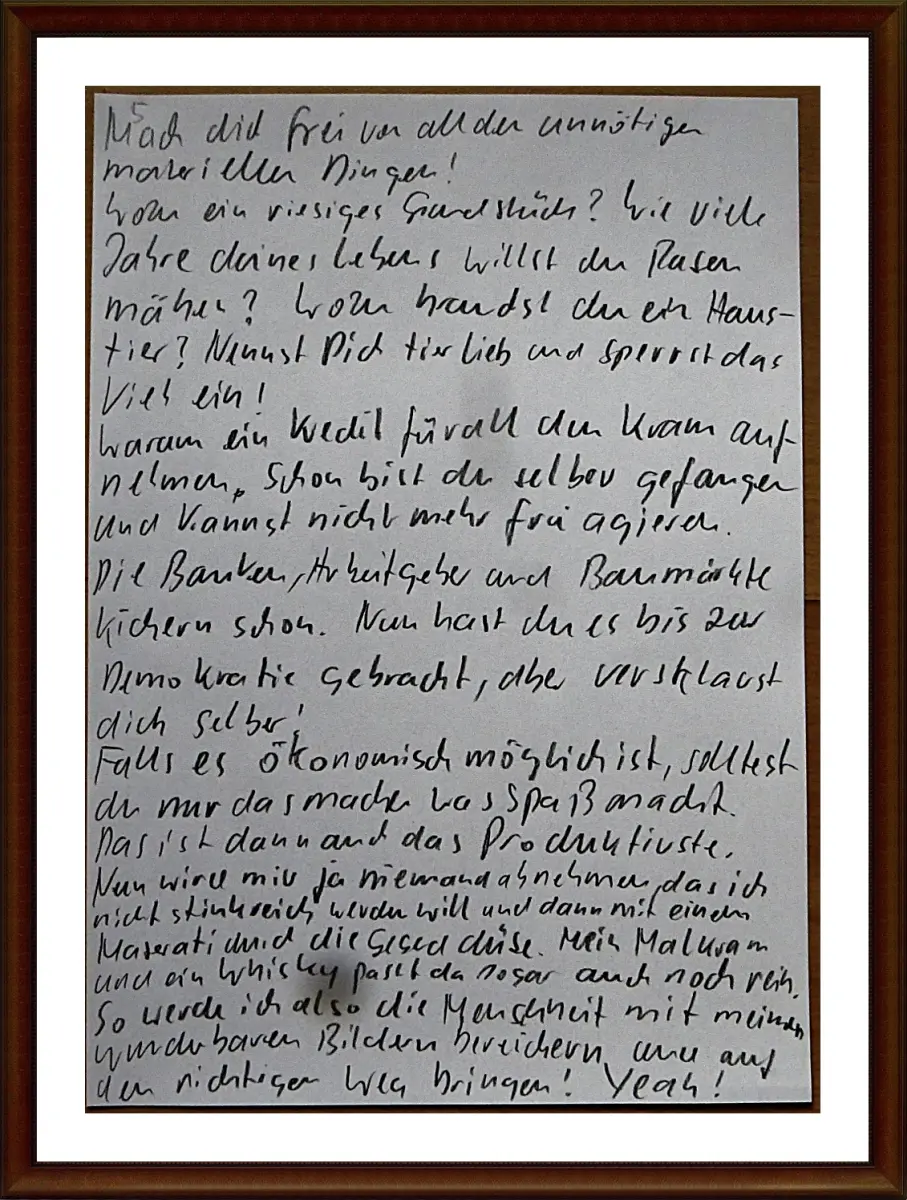 5
Mach dich frei von all den unnötigen
materiellen Dingen!
Wozu ein riesiges Grundstück? Wie viele
Jahre deines Lebens willst du Rasen
mähen? Wozu brauchst du ein Haus-
tier? Nennst Dich tierlieb und sperrst das
Vieh ein!
Warum ein Kredit für all den Kram auf-
nehmen, Schon bist du selber gefangen
und kannst nicht mehr frei agieren.
Die Banken, Arbeitgeber und Baumärkte
kichern schon. Nun hast du es bis zur
Demokratie gebracht, aber versklavst
dich selber!
Falls es ökonomisch möglich ist, solltest
du nur das machen was Spaß macht.
Das ist dann auch das Produktivste.
Nun wird mir ja niemand abnehmen, das ich
nicht stinkreich werden will und dann mit einem
Maserati durch die Gegend düse. Mein Malkram
und ein Whisky passt da sogar auch noch rein.
So werde ich also die Menschheit mit meinen
wunderbaren Bildern bereichern und auf
den richtigen Weg bringen! Yeah!